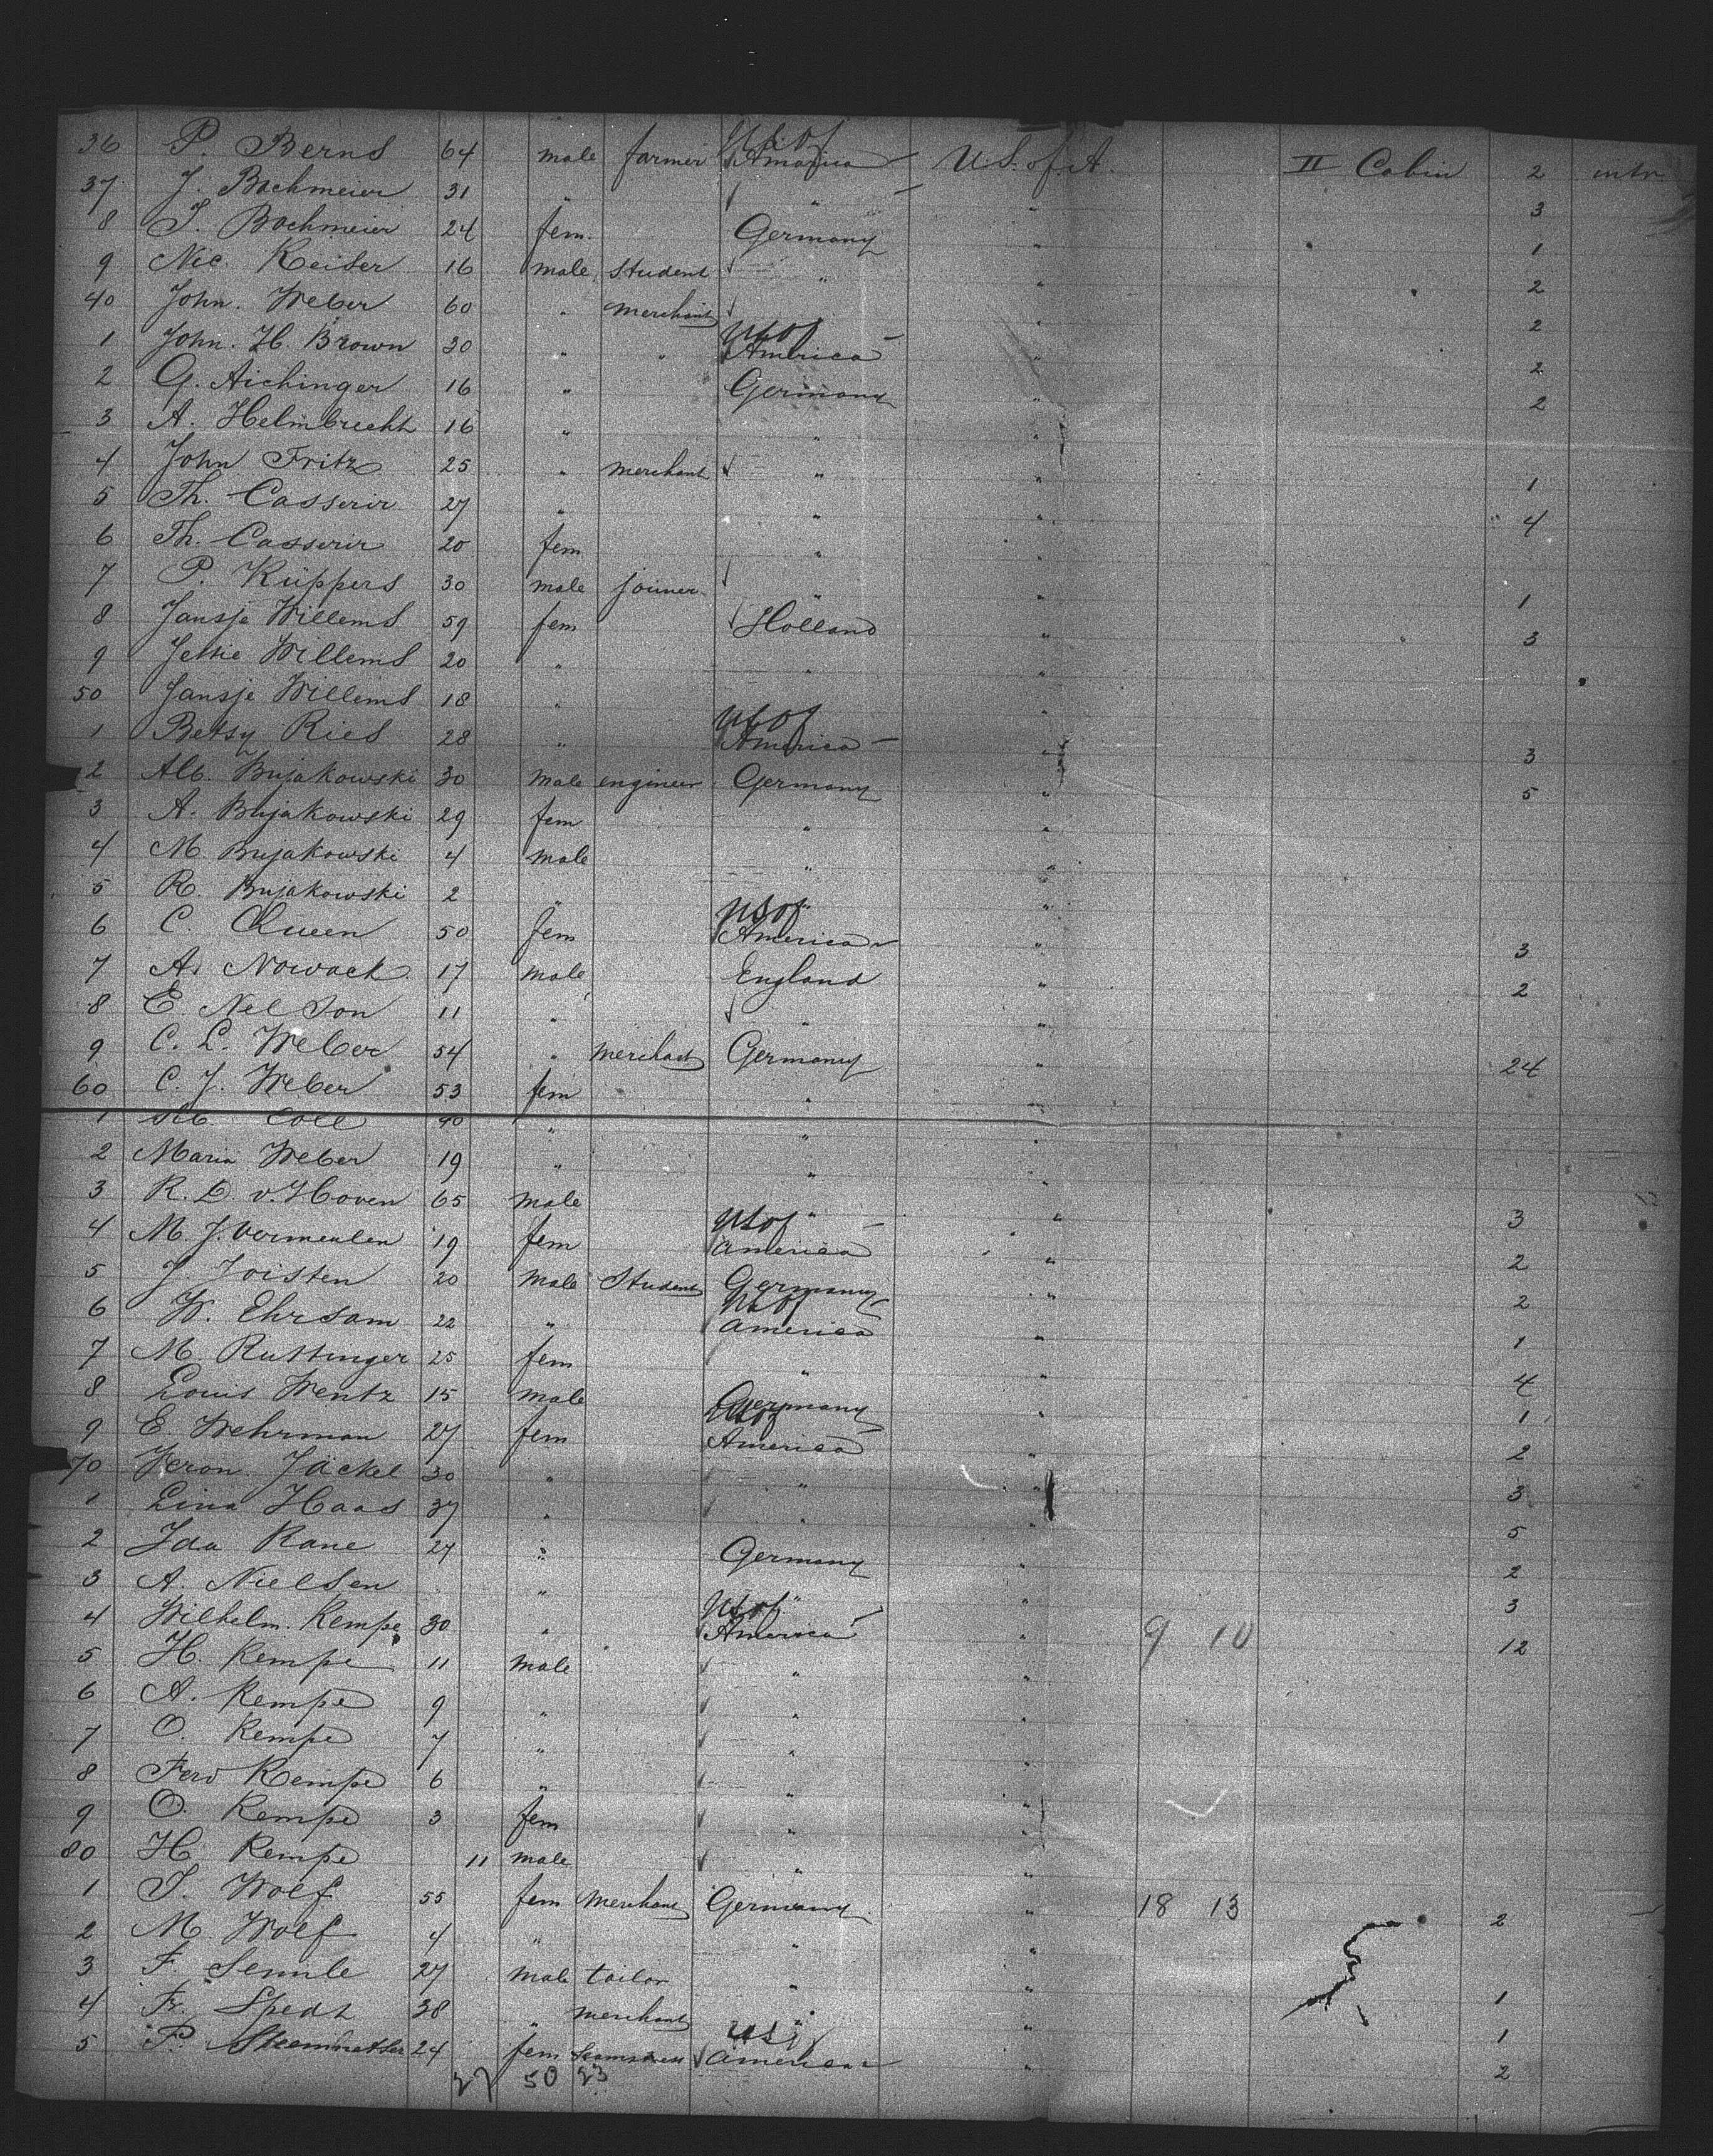 36 P. Berns 64 male farmer U S of America U.S. of A. II Cabin 2 intr.
37 J. Bachmeier 31 " " " 3
8 T. Bachmeier 24 fem. Germany " 1
9 Nic. Reiser 16 male student " " 2
40 John. Weber 60 " merchant " 2
1 John. H. Brown 30 " " US of America " 2
2 G. Aichinger 16 " Germany " 2
3 A. Helmbrecht 16 " " "
4 John Fritz 25 " merchant " " 1
5 Th. Casserir 27 " " " 4
6 Th. Casserir 20 fem " "
7 P. Küppers 30 male joiner " " 1
8 Jansje Willems 59 fem Holland " 3
9 Jettie Willems 20 " " "
50 Jansje Willems 18 " "
1 Betsy Ries 28 " US of America " 3
2 Alb. Bujakowski 30 male engineer Germany " 5
3 A. Bujakowski 29 fem " "
4 M. Bujakowski 4 male " "
5 R. Bujakowski 2 " " "
6 C. Queen 50 fem US of America " 3
7 A. Nowack 17 male England " 2
8 E. Nelson 11 " " "
9 C. L. Weber 54 " merchant Germany " 24
60 C. J. Weber 53 fem " "
1 " "
2 Maria Weber 19 " " "
3 R. D. v. Hoven 65 male " " 3
4 M. J. Vermeulen 19 fem US of America " 2
5 J. Joisten 20 male Student Germany " 2
6 W. Ehrsam 22 " US of America " 1
7 M. Ruttinger 25 fem " 4
8 Louis Wentz 15 male Germany " 1
9 E. Wehrman 27 fem US of America " 2
70 Veron. Jäckel 30 " " " 3
1 Lina Haas 37 " " " 5
2 Ida Kane 27 " Germany " 2
3 A. Nielsen " " 3
4 Wilhelm. Kempe 30 " US of America " 9 10 12
5 H. Kempe 11 male " "
6 A. Kempe 9 " " "
7 O. Kempe 7 " " "
8 Ferd Kempe 6 " " "
9 O. Kempe 3 fem " "
80 H. Kempe 11 male " "
1 S. Wolf 55 fem merchant Germany " 18 13 2
2 M. Wolf 4 " " "
3 F. Semle 27 male tailor " " 1
4 Fr. Specht 38 " merchant " " 1
5 P. 24 fem Seamstress US of America " 2
27 50 23